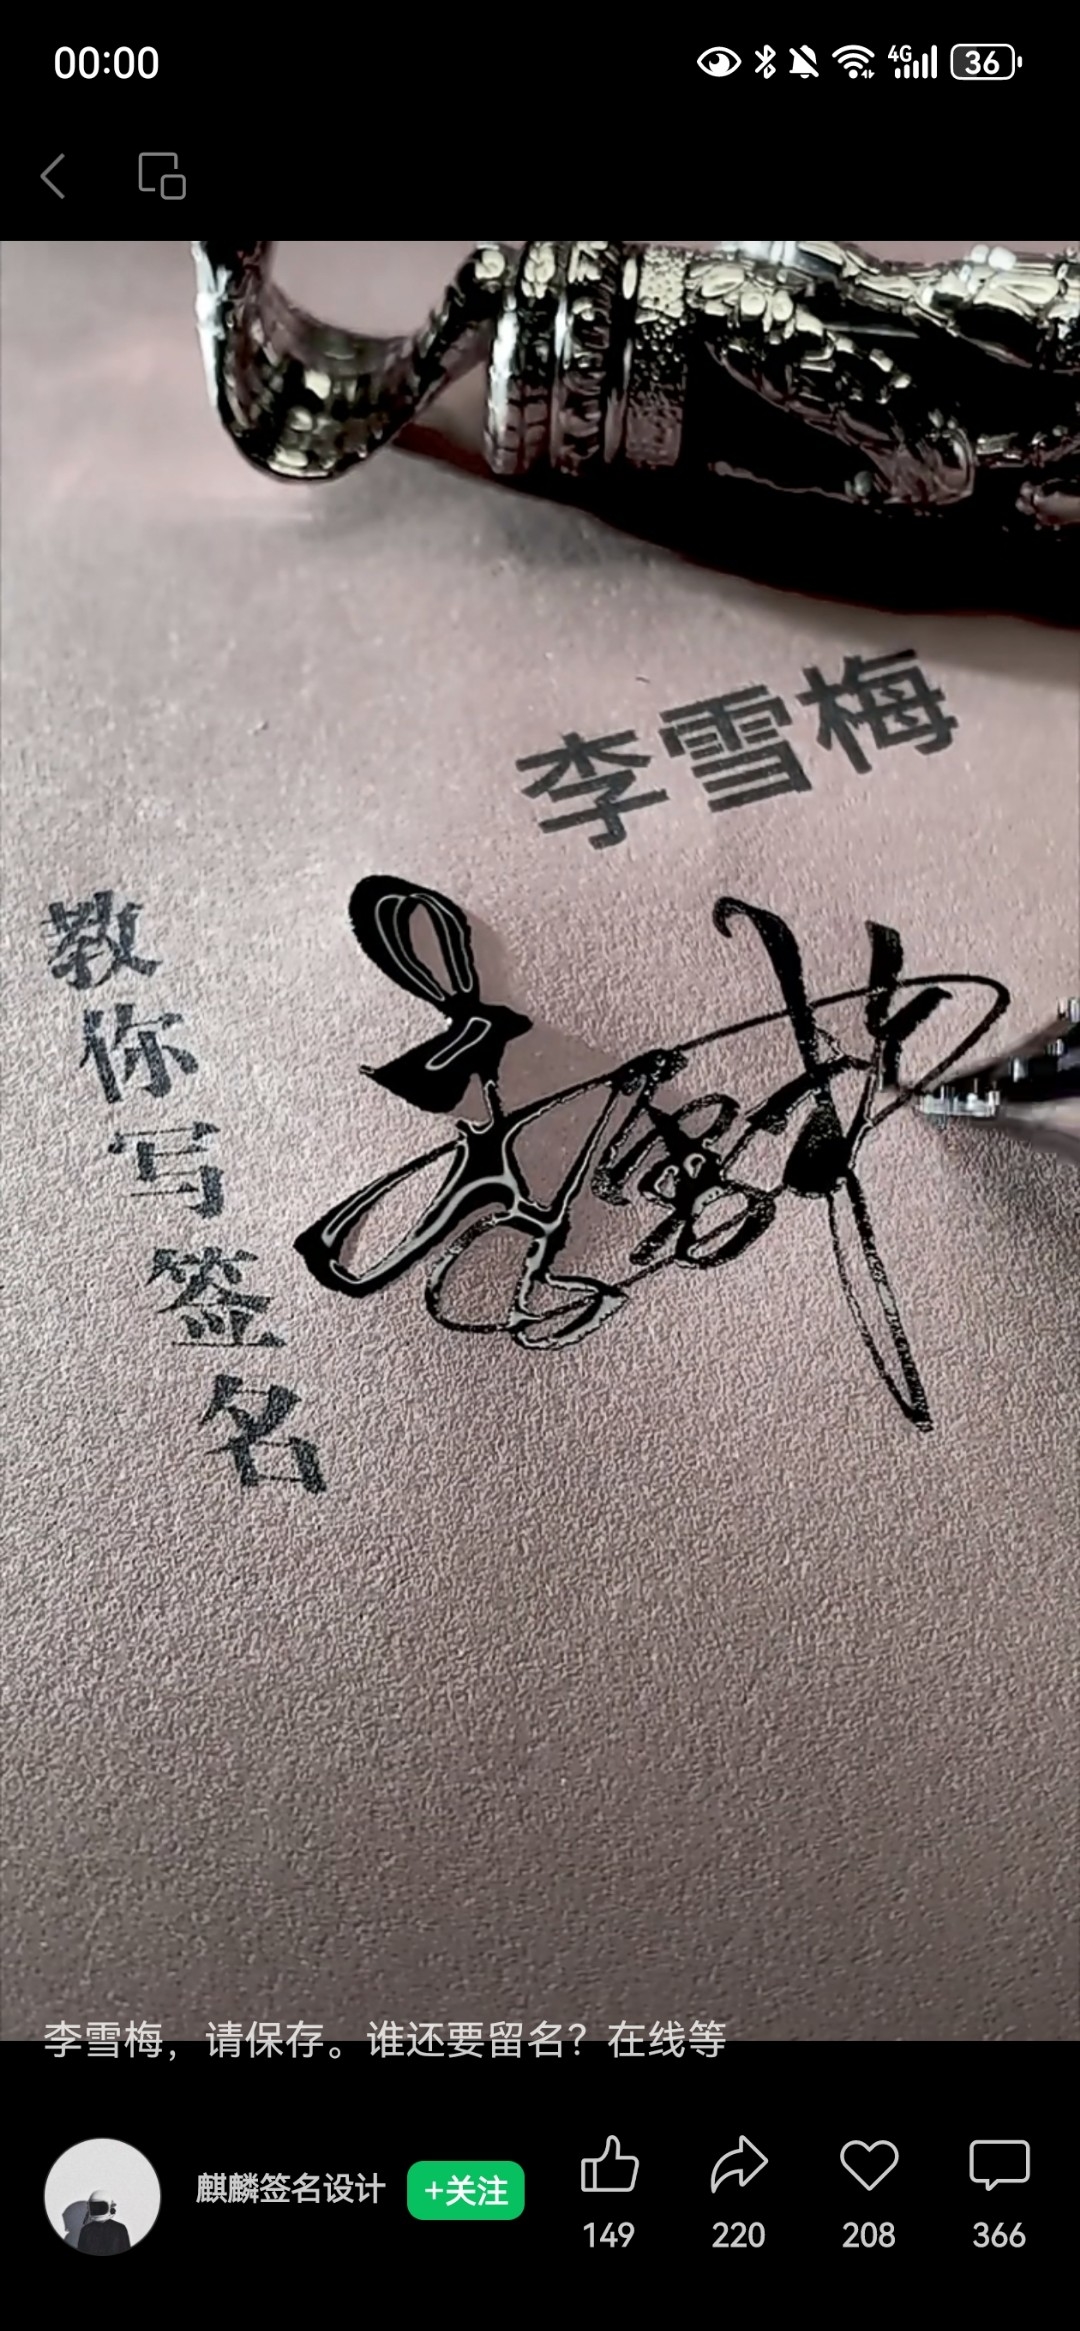 00:00
4G
36
李雪梅
教你写签名
李雪梅
李雪梅，请保存。谁还要留名？在线等
麒麟签名设计
+关注
149
220
208
366